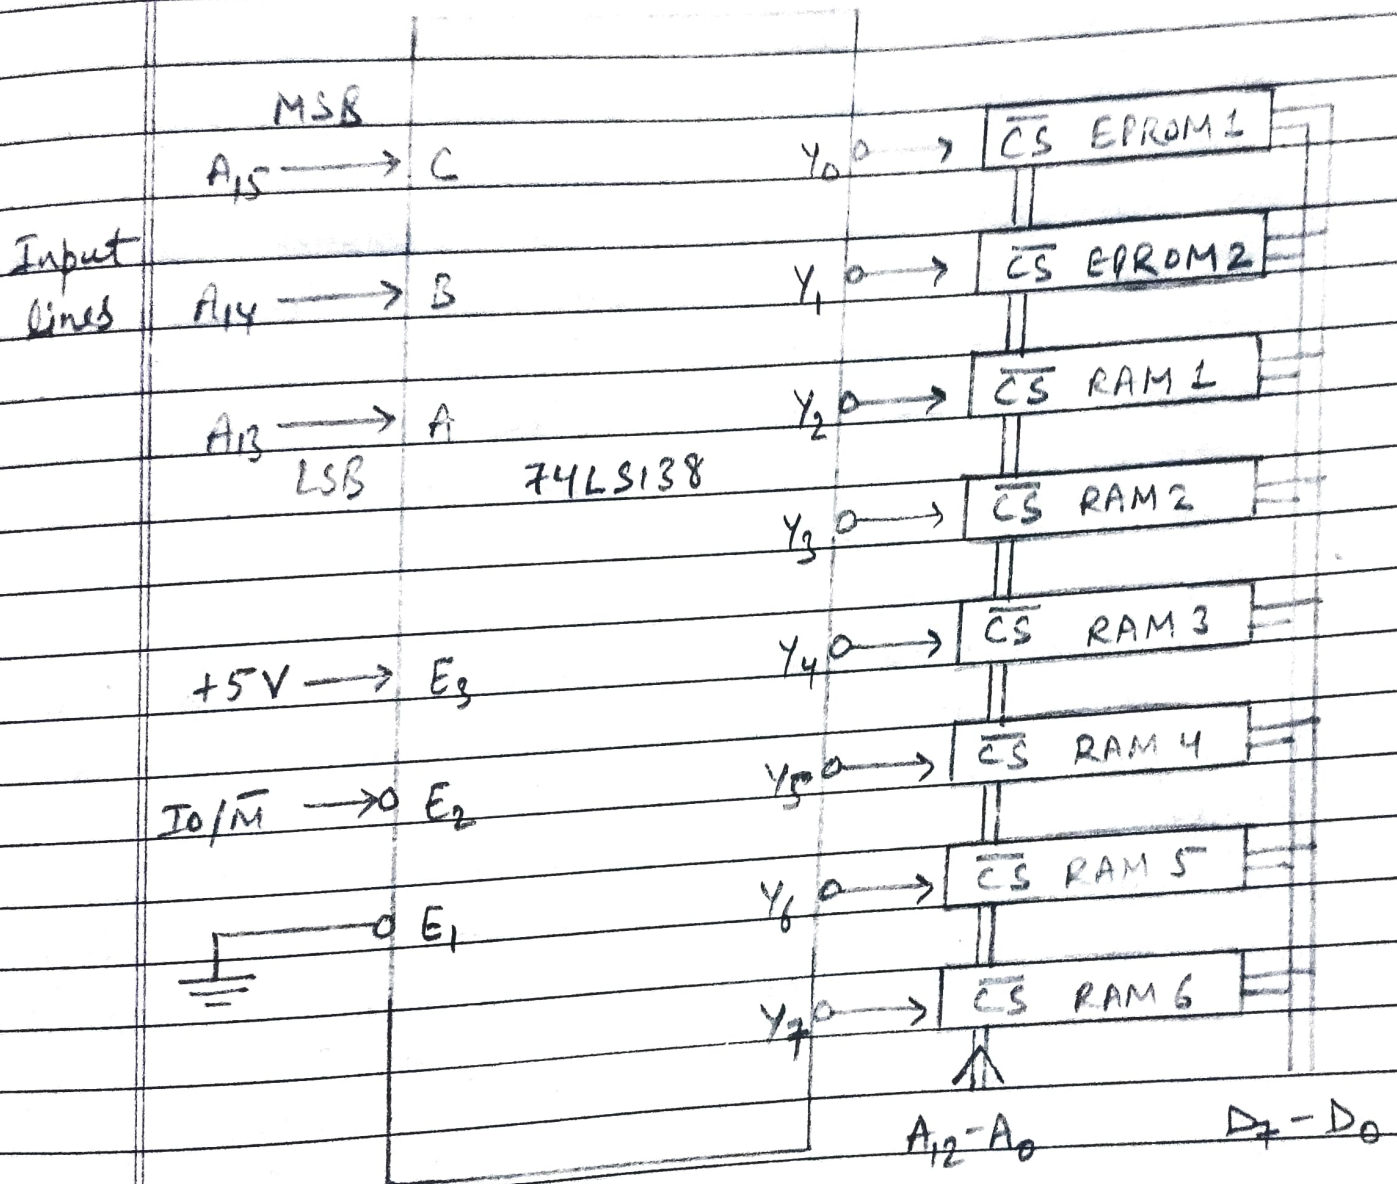 MSB
A15 C
Input lines
A14 B
A13 A
LSB
74LS138
+5V E3
IO/M̅ E2
E1
Y0 C̅S̅ EPROM1
Y1 C̅S̅ EPROM2
Y2 C̅S̅ RAM 1
Y3 C̅S̅ RAM 2
Y4 C̅S̅ RAM 3
Y5 C̅S̅ RAM 4
Y6 C̅S̅ RAM 5
Y7 C̅S̅ RAM 6
A12-A0
D7-D0